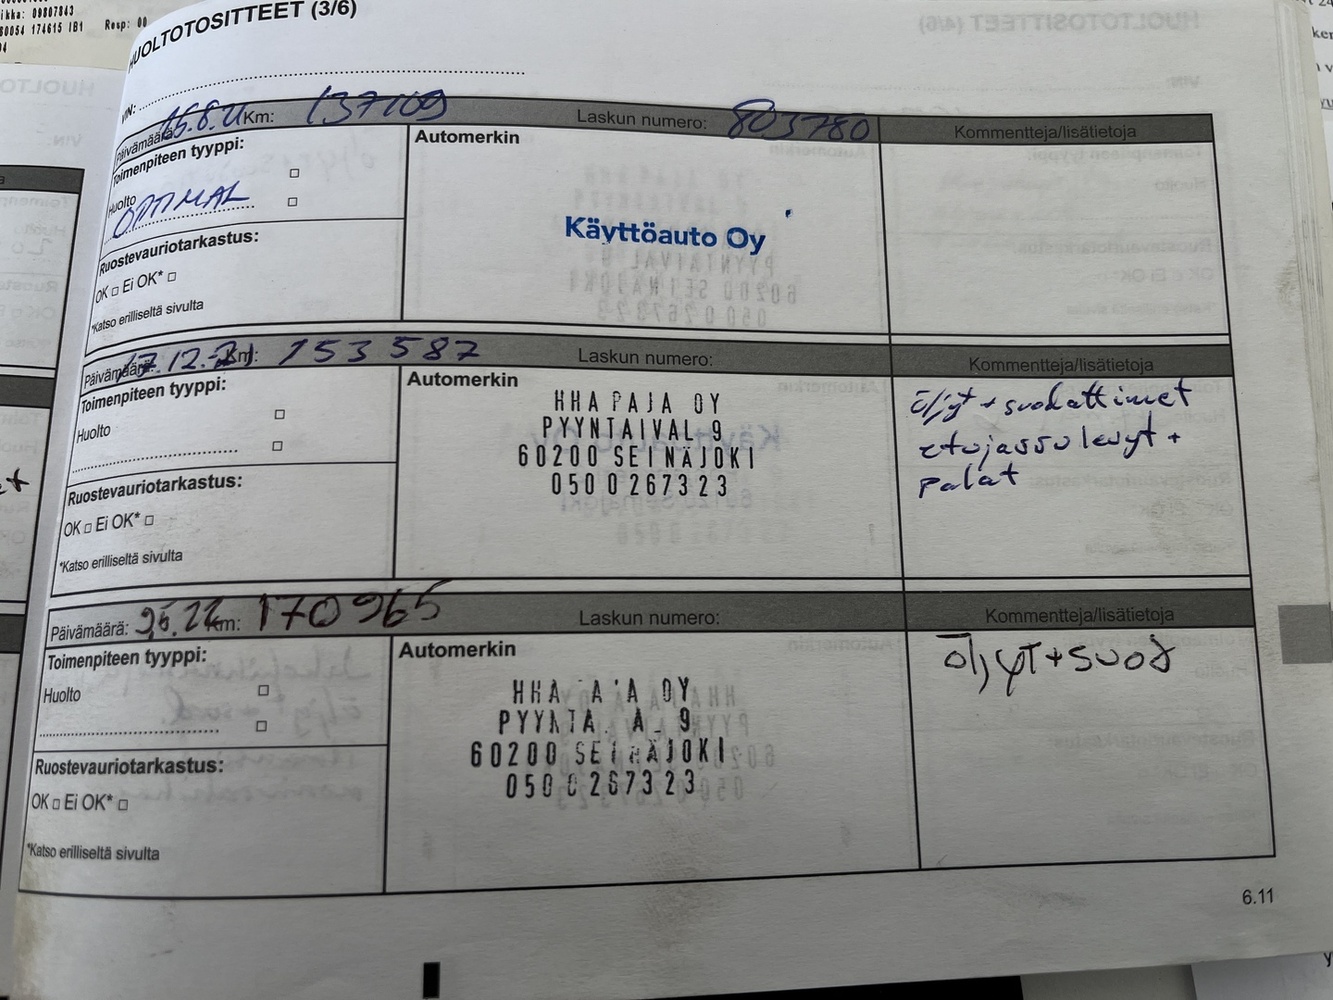 ikka: 09807843
60054 174615 IB1 Resp: 00
HUOLTOTOSITTEET (3/6)
VIN:
Päivämäärä: 15.8.21 Km: 137109 Laskun numero: 803780 Kommentteja/lisätietoja
Toimenpiteen tyyppi:
Automerkin
Huolto
OPTIMAL
Käyttöauto Oy
Ruostevauriotarkastus:
OK □ Ei OK* □
*Katso erilliseltä sivulta
Päivämäärä: 17.12.21 Km: 153 587 Laskun numero: Kommentteja/lisätietoja
Toimenpiteen tyyppi:
Automerkin
Huolto
HHA PAJA OY
PYYNTAIVAL 9
60200 SEINÄJOKI
050 0 267323
öljyt + suodattimet
etujarrulevyt +
palat
Ruostevauriotarkastus:
OK □ Ei OK* □
*Katso erilliseltä sivulta
Päivämäärä: Km: 170965 Laskun numero: Kommentteja/lisätietoja
Toimenpiteen tyyppi:
Automerkin
Huolto
HHA A A OY
PYYNTA A 9
60200 SEINÄJOKI
050 0 267323
öljyt + suod
Ruostevauriotarkastus:
OK □ Ei OK* □
*Katso erilliseltä sivulta
6.11